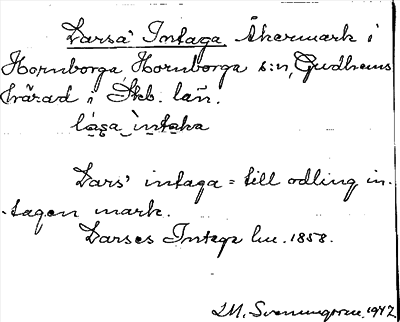 Larsa Intaga, Åkermark i
Hornborga, Hornborga s:n, Gudhems
härad i Skb. län.
lása intaka
Lars' intaga = till odling in-
tagen mark.
Larses Intaga lm. 1858.
I.M. Svenungsson. 1947